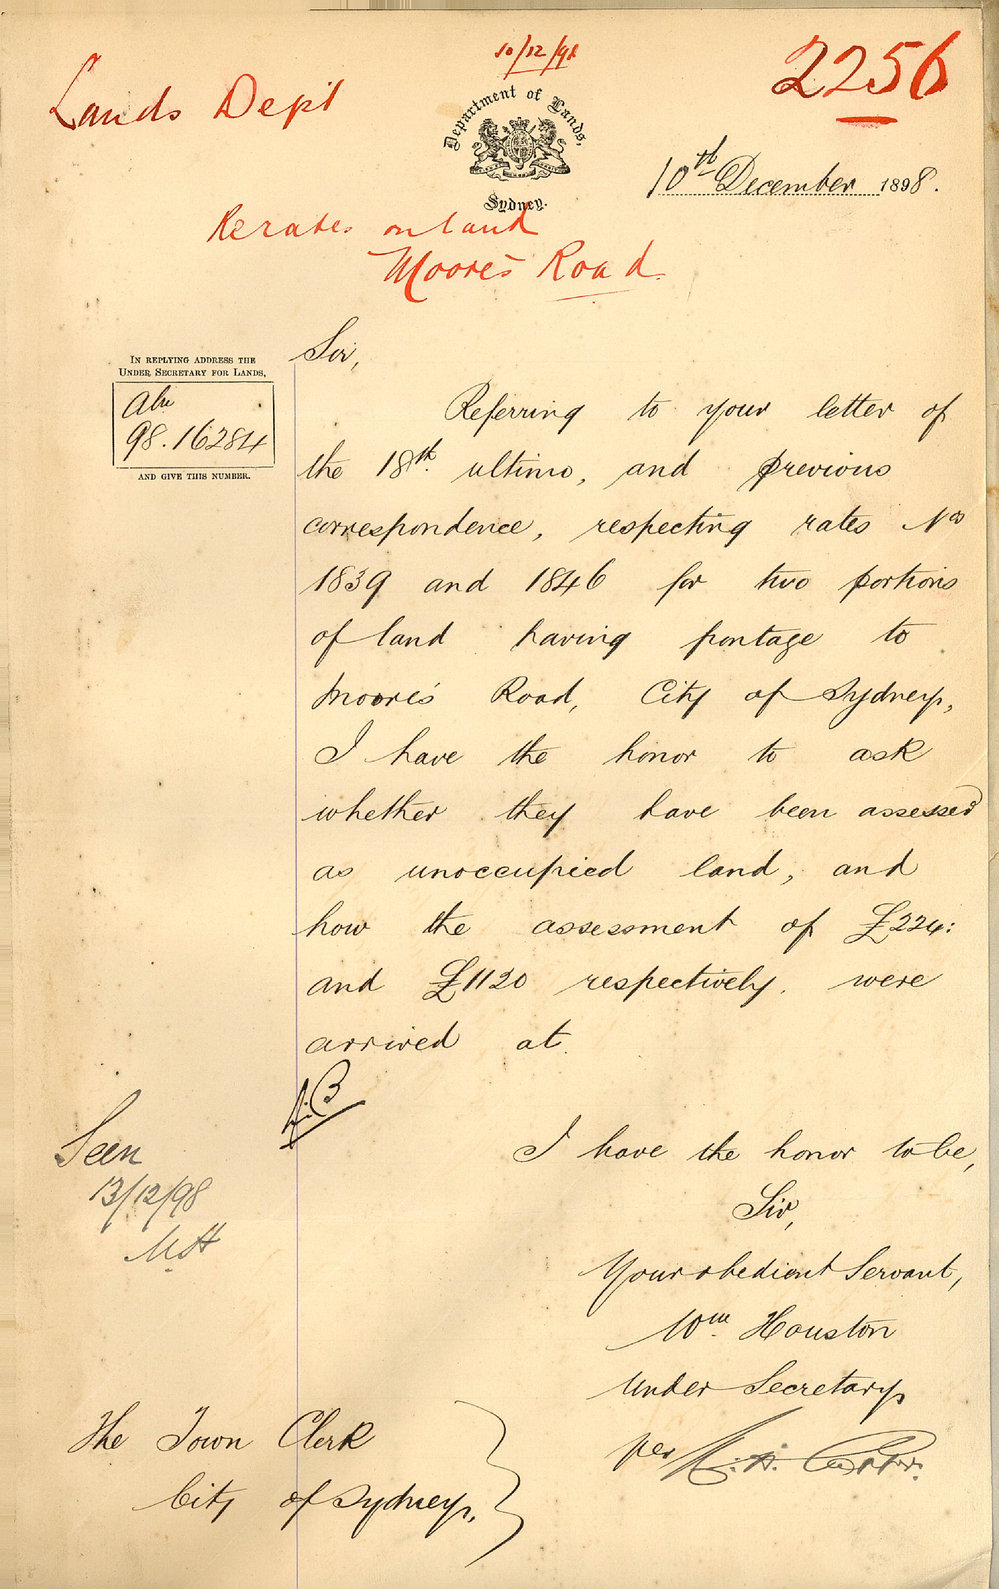 10/12/98
2256
Lands Dept
Department of Lands,
Sydney.
10th December 1898.
Re rates on land
Moore's Road
IN REPLYING ADDRESS THE
UNDER SECRETARY FOR LANDS,
Aln
98.16284
AND GIVE THIS NUMBER.
Sir,
Referring to your letter of
the 18th ultimo, and previous
correspondence, respecting rates Nos
1839 and 1846 for two portions
of land having frontage to
Moore's Road, City of Sydney,
I have the honor to ask
whether they have been assessed
as unoccupied land, and
how the assessment of £224:
and £1120 respectively were
arrived at.
I have the honor to be,
Sir,
Your obedient Servant,
Wm Houston
Under Secretary
per
Seen
13/12/98
The Town Clerk
City of Sydney,